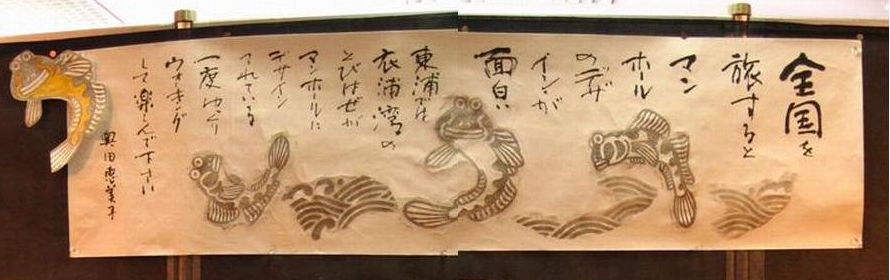 全国を
旅すると
マン
ホール
のデザ
インが
面白い
東浦では
衣浦湾の
とびはぜが
マンホールに
デザイン
されている
一度ゆっくり
ウォキング
して楽しんで下さい
奥田恵美子